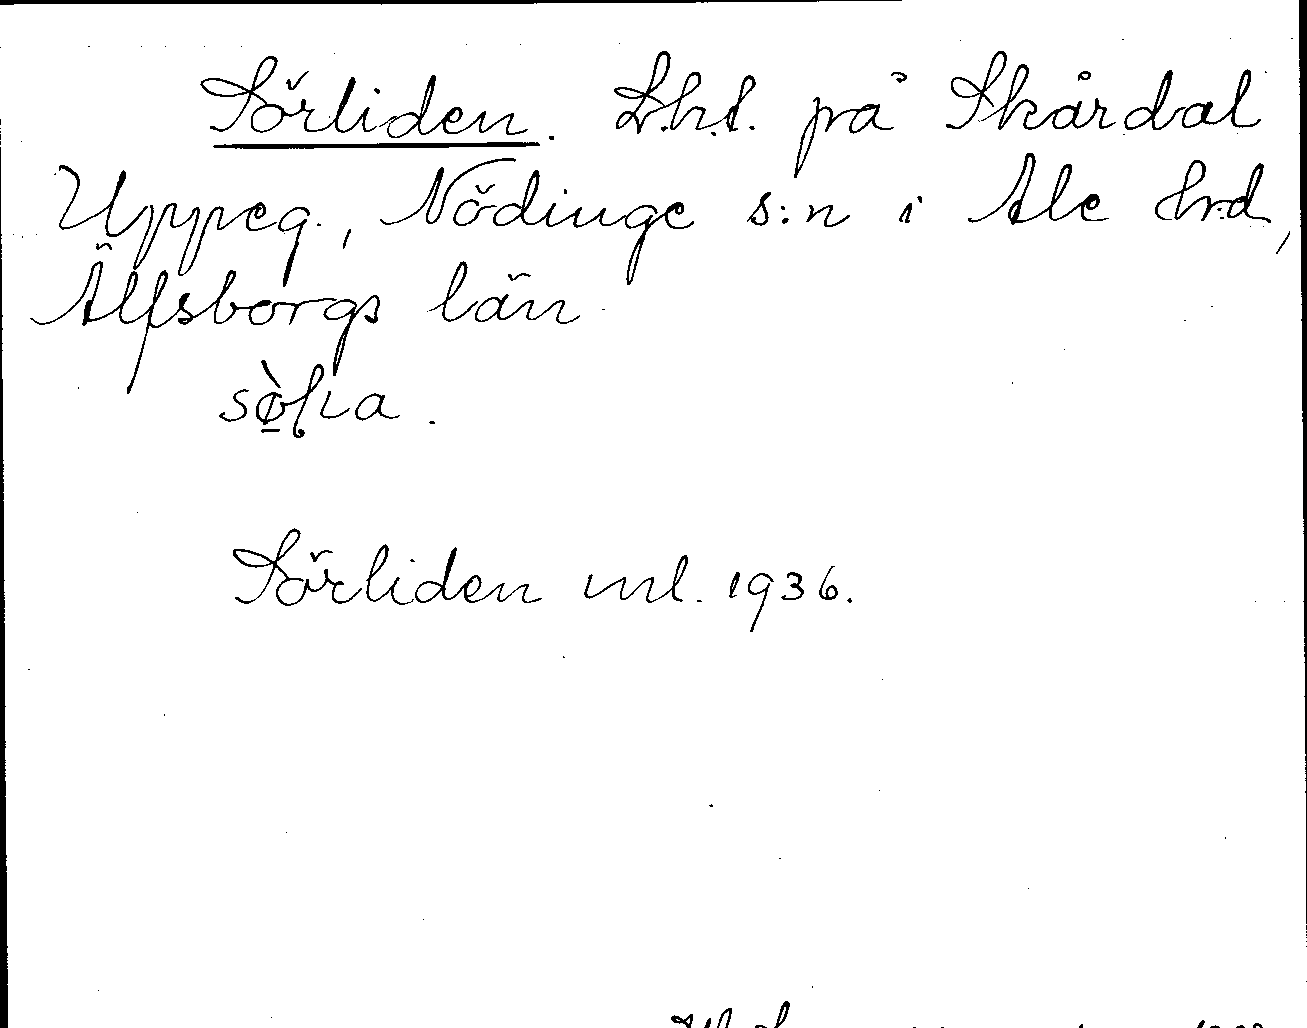 Sörliden. L.h.t. på Skårdal
Uppeg., Nödinge s:n i Ale hrd,
Älfsborgs län

Sörliden ml. 1936.